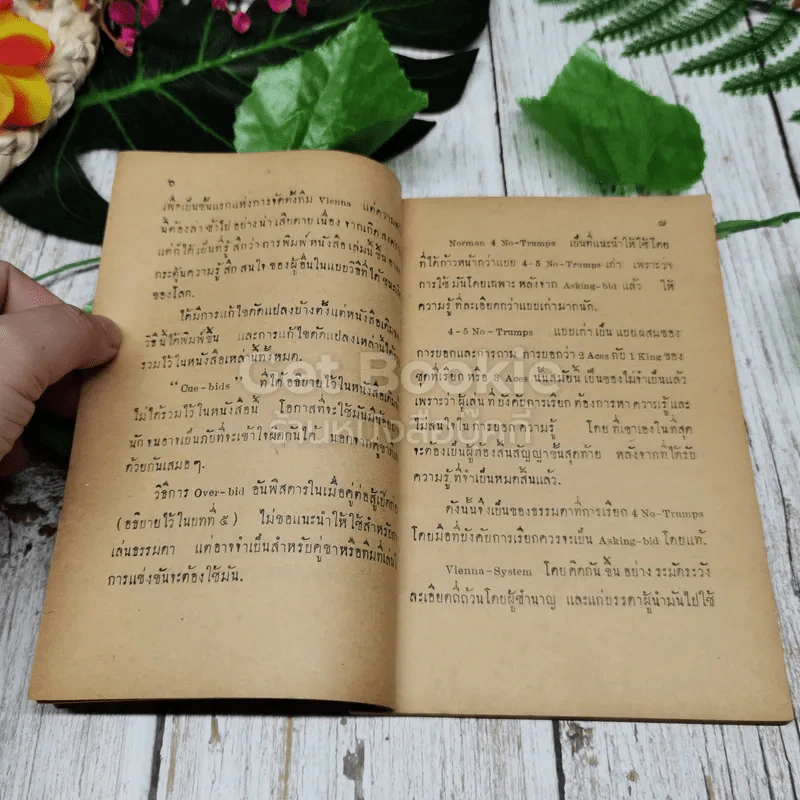 ๖
เพื่อเป็นขั้นแรกแห่งการจัดตั้งทีม Vienna แต่ความ
นี้ต้องล่าช้าไป อย่างน่าเสียดาย เนื่องจากเกิดสงคราม
แต่ก็ได้เป็นที่รู้สึกว่าการพิมพ์หนังสือเล่มนี้ขึ้น
กระตุ้นความรู้สึกสนใจ ของผู้อื่นในแบบวิธีที่ได้
ของโลก.
ได้มีการแก้ไขดัดแปลงบ้างตั้งแต่หนังสือเดิม
วิธีนี้ได้พิมพ์ขึ้น และการแก้ไขดัดแปลงเหล่านี้ได้
รวมไว้ในหนังสือเหล่านี้ทั้งหมด.
"Cue-bids ที่ได้อธิบายไว้ในหนังสือเดิม
ไม่ได้รวมไว้ในหนังสือนี้ โอกาสที่จะใช้มันมีน้อย
นัก จนอาจเป็นภัยที่จะเข้าใจผิดกันได้ นอกจาก
ด้วยกันเสมอๆ.
วิธีการ Over-bid อันพิสดารในเมื่อคู่ต่อสู้เปิดก่อน
(อธิบายไว้ในบทที่ ๕) ไม่ขอแนะนำให้ใช้สำหรับ
เล่นธรรมดา แต่อาจจำเป็นสำหรับคู่ขาหรือทีมที่เล่น
การแข่งขันจะต้องใช้มัน.
๗
Norman 4 No-Trumps เป็นที่แนะนำให้ใช้โดย
ที่ได้ก้าวหน้ากว่าแบบ 4-5 No-Trumps เก่า เพราะว่า
การใช้มันโดยเฉพาะ หลังจาก Asking-bid แล้ว ให้
ความรู้ที่ละเอียดกว่าแบบเก่ามากนัก.
4-5 No-Trumps แบบเก่าเป็น แบบผสมของ
การบอกและการถาม การบอกว่า 2 Aces กับ 1 King ของ
ชุดที่เรียก หรือ 3 Aces นั้นสมัยนี้ เป็นของไม่จำเป็นแล้ว
เพราะว่า ผู้เล่น ที่บังคับการเรียก ต้องการหา ความรู้ และ
ไม่สนใจใน การบอก ความรู้ โดย ที่เขาเองในที่สุด
จะต้องเป็นผู้ต้องสิ้นสัญญาขั้นสุดท้าย หลังจากที่ได้รับ
ความรู้ ที่จำเป็นหมดสิ้นแล้ว.
ดังนั้นจึงเป็นของธรรมดาที่การเรียก 4 No-Trumps
โดยมือที่บังคับการเรียกควรจะเป็น Asking-bid โดยแท้.
Vienna-System โดยคิดกันขึ้นอย่าง ระมัดระวัง
ละเอียดถี่ถ้วนโดยผู้ชำนาญ และแก่บรรดาผู้นำมันไปใช้
Get Bookie